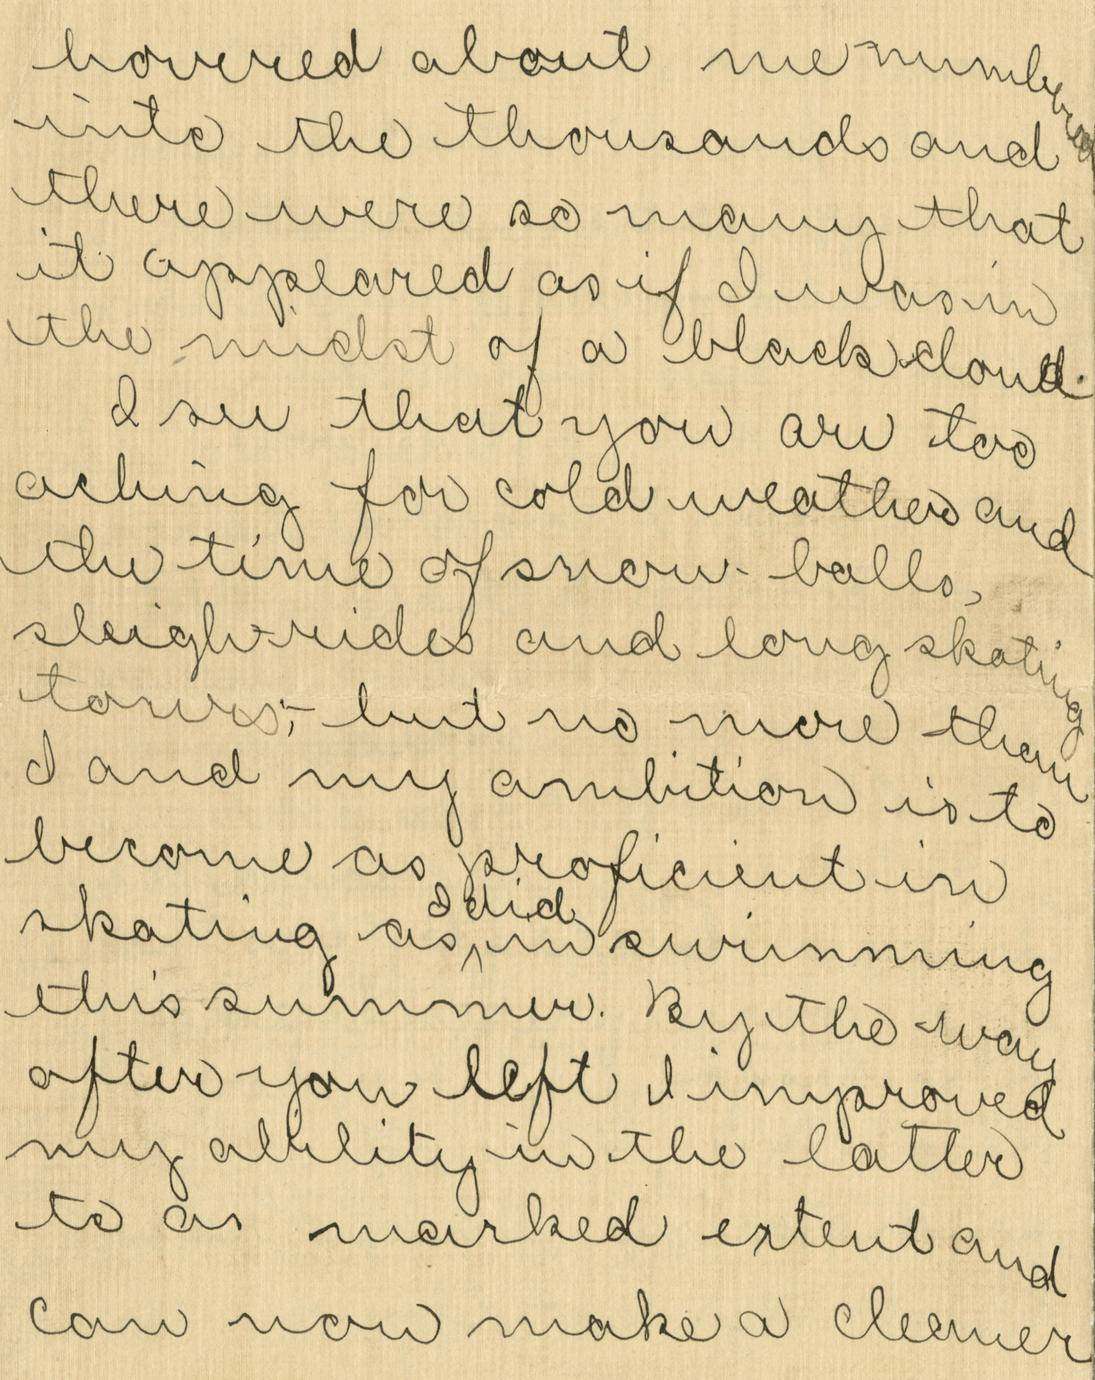 hovered about me numbered
into the thousands and
there were so many that
it appeared as if I was in
the midst of a black cloud.
I see that you are too
aching for cold weather and
the time of snow-balls,
sleigh-rides and long skating
tours;- but no more than
I and my ambition is to
become as proficient in
skating as I did in swimming
this summer. By the way
after you left I improved
my ability in the latter
to as marked extent and
can now make a cleaner